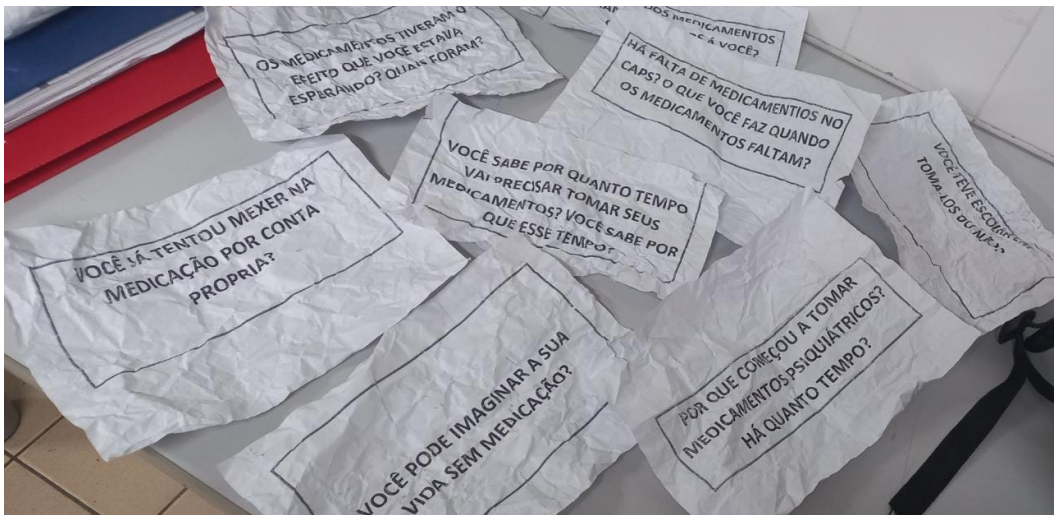 OS MEDICAMENTOS TIVERAM O
EFEITO QUE VOCÊ ESTAVA
ESPERANDO? QUAIS FORAM?
DOS MEDICAMENTOS
VOCÊ?
HÁ FALTA DE MEDICAMENTIOS NO
CAPS? O QUE VOCÊ FAZ QUANDO
OS MEDICAMENTOS FALTAM?
VOCÊ TEVE
TOMA-LOS OU NÃO?
VOCÊ SABE POR QUANTO TEMPO
VAI PRECISAR TOMAR SEUS
MEDICAMENTOS? VOCÊ SABE POR
QUE ESSE TEMPO?
VOCÊ JÁ TENTOU MEXER NA
MEDICAÇÃO POR CONTA
PROPRIA?
VOCÊ PODE IMAGINAR A SUA
VIDA SEM MEDICAÇÃO?
POR QUE COMEÇOU A TOMAR
MEDICAMENTOS PSIQUIÁTRICOS?
HÁ QUANTO TEMPO?